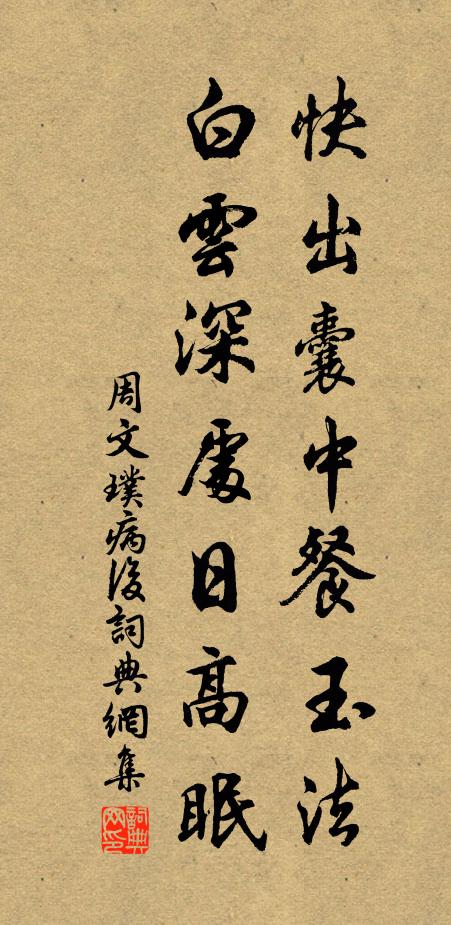 快出囊中餐玉法
白雲深處日高眠
周文璞病後詞典網集
詞典网印